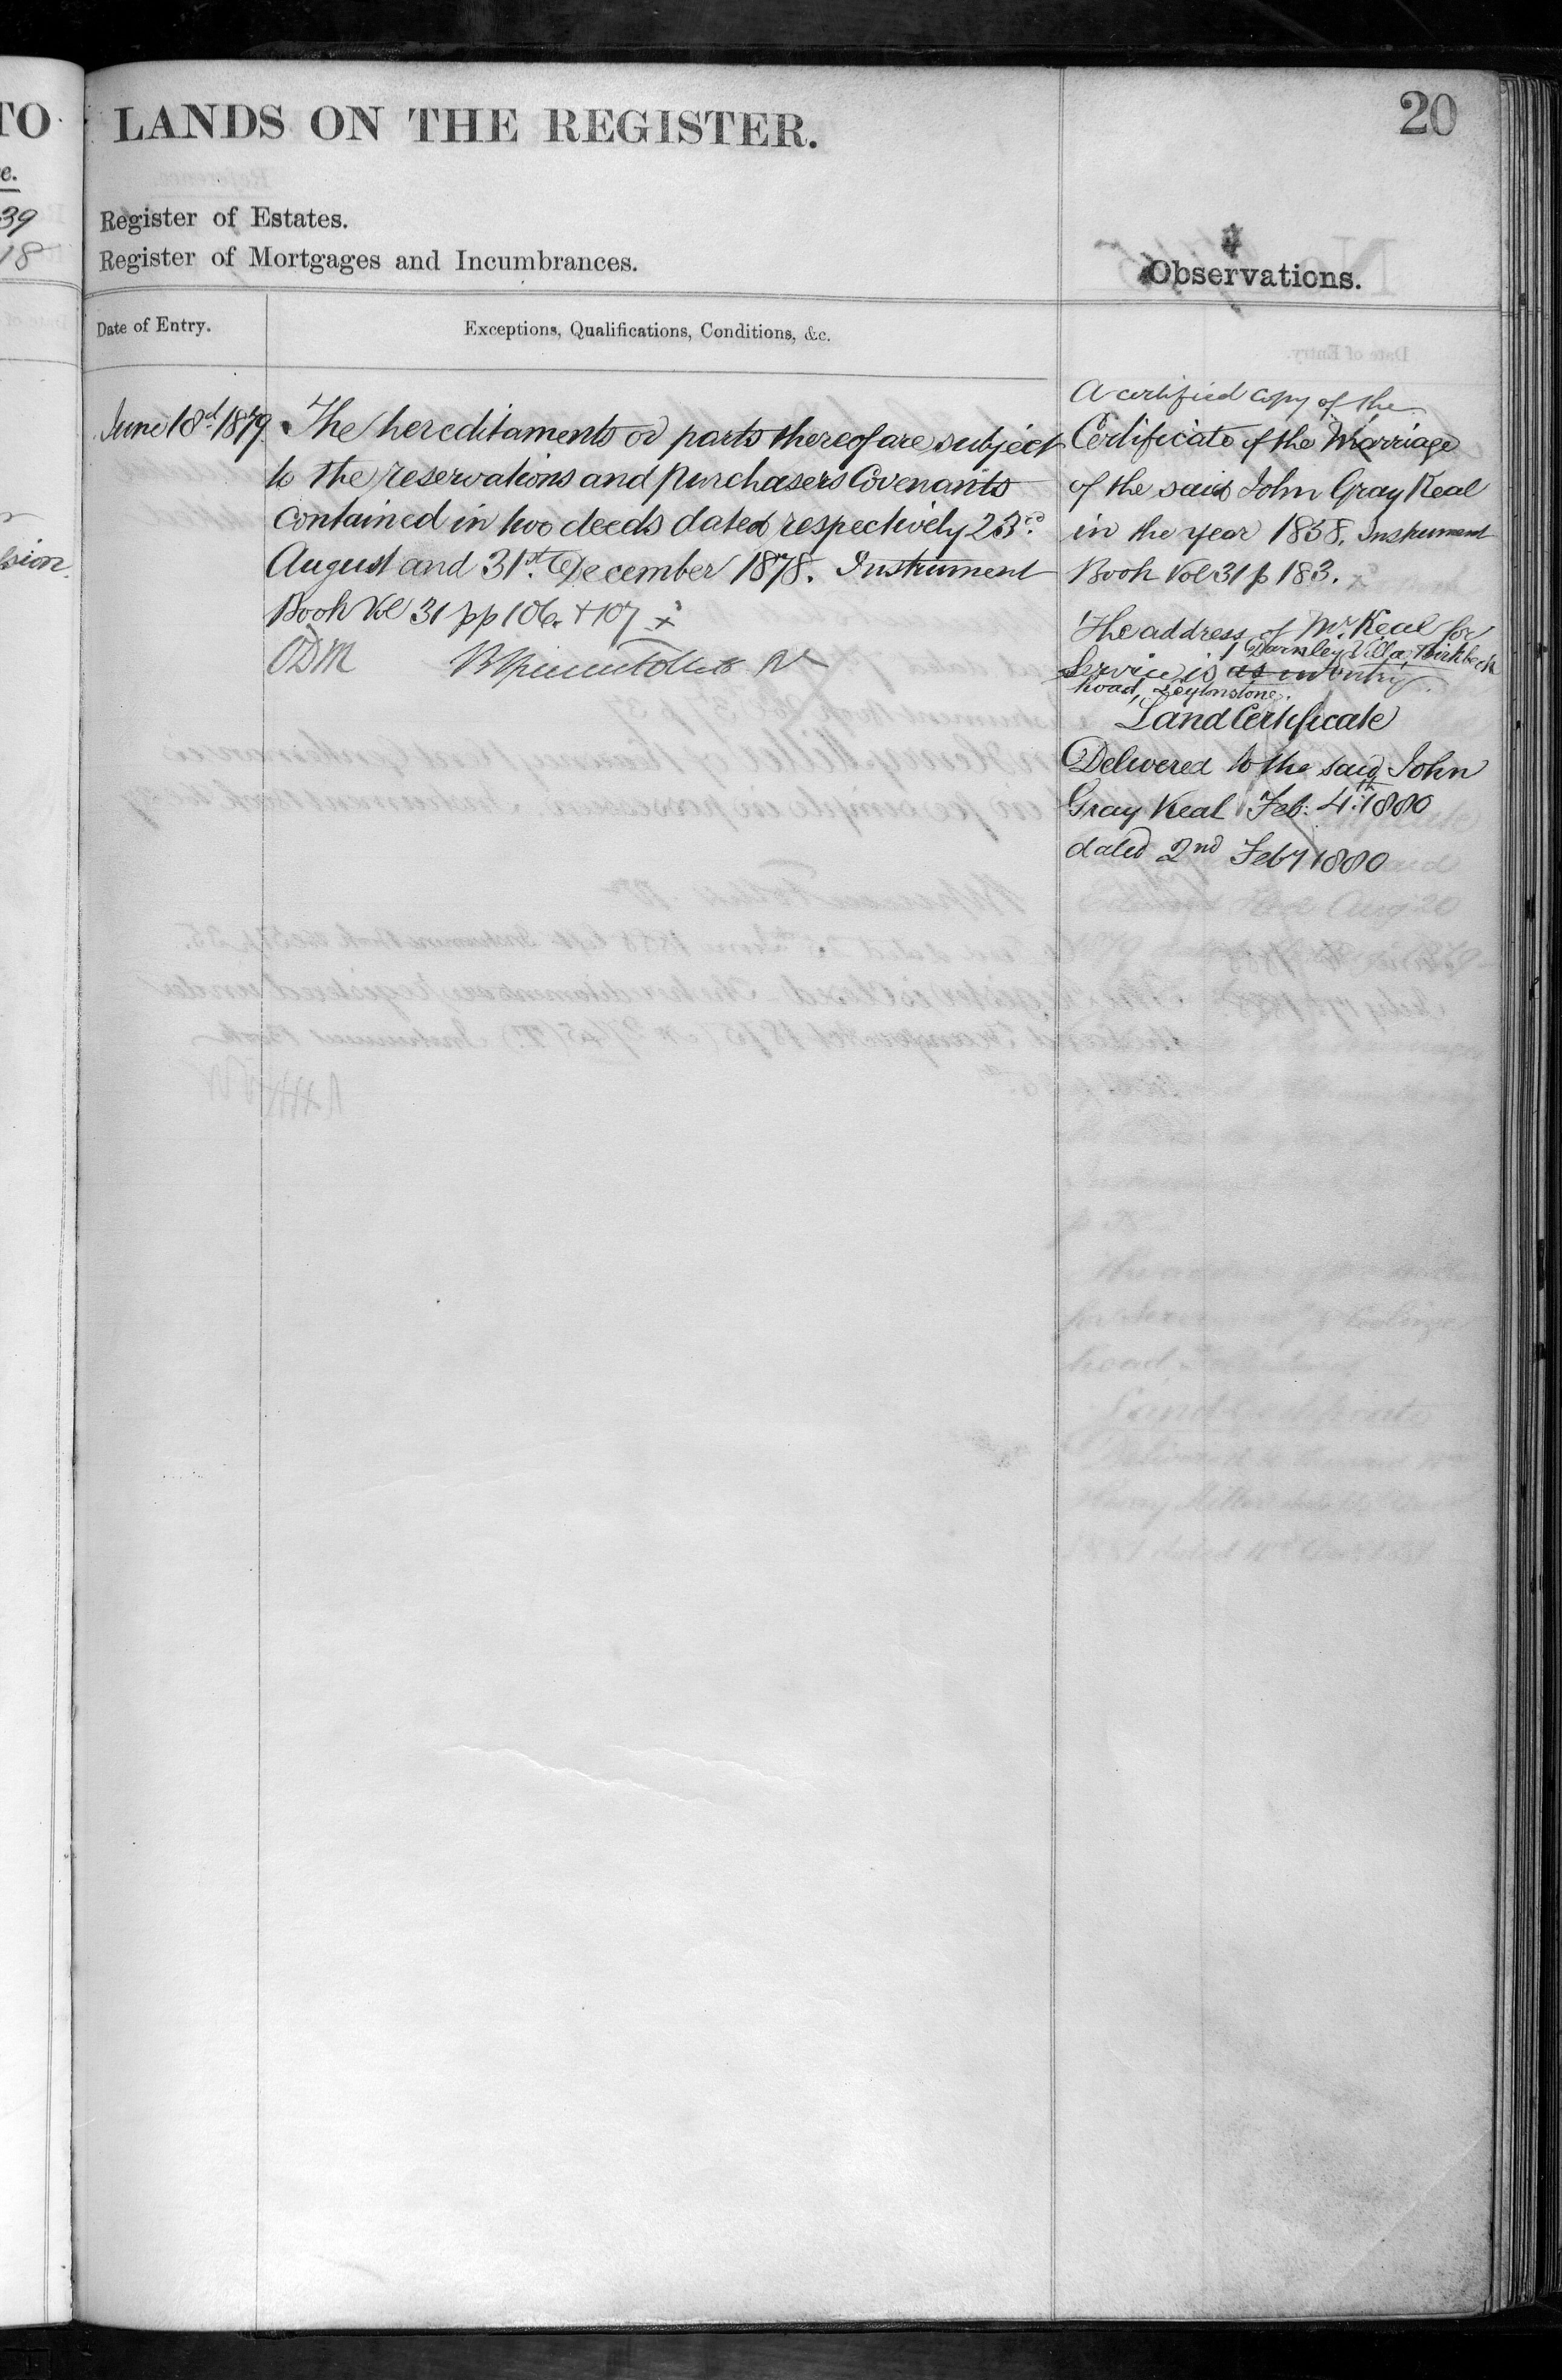 TO
LANDS ON THE REGISTER.
20
e.
39
18
Register of Estates.
Register of Mortgages and Incumbrances.
Observations.
Date of Entry.
Exceptions, Qualifications, Conditions, &c.
June 18d 1879
The hereditaments or parts thereof are subject
to the reservations and purchasers Covenants
contained in two deeds dated respectively 23rd
August and 31st December 1878. Instrument
Book Vol 31 pp 106. + 107 x
ODM
A certified copy of the
Certificate of the Marriage
of the said John Gray Keal
in the year 1858. Instrument
Book Vol 31 p 183. x
The address of Mr Keal for
1 Darnley Villa, Birkbeck
Service is as in entry
Road, Leytonstone.
Land Certificate
Delivered to the said John
Gray Keal Feb: 4th 1880
dated 2nd Feby 1880
sion.